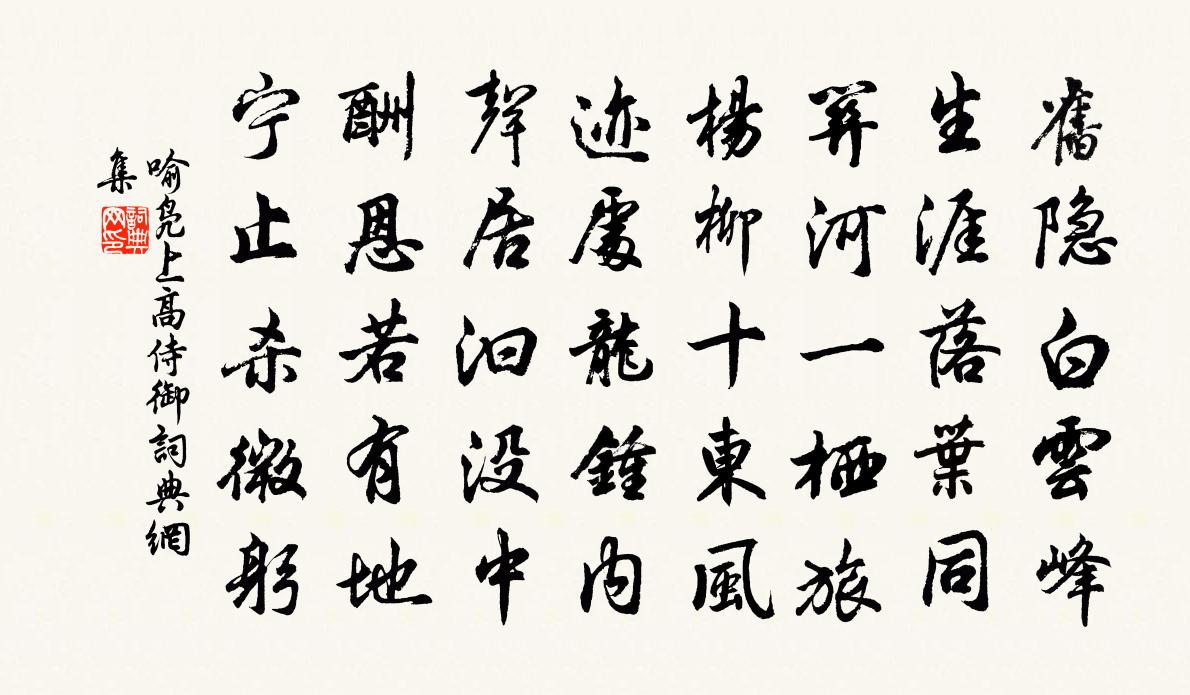 舊隐白雲峰
生涯落葉同
關河一栖旅
楊柳十東風
迹處龍鍾内
聲居汩没中
酬恩若有地
宁止杀微躬
喻凫上高侍御詞典網
集
詞典
网印